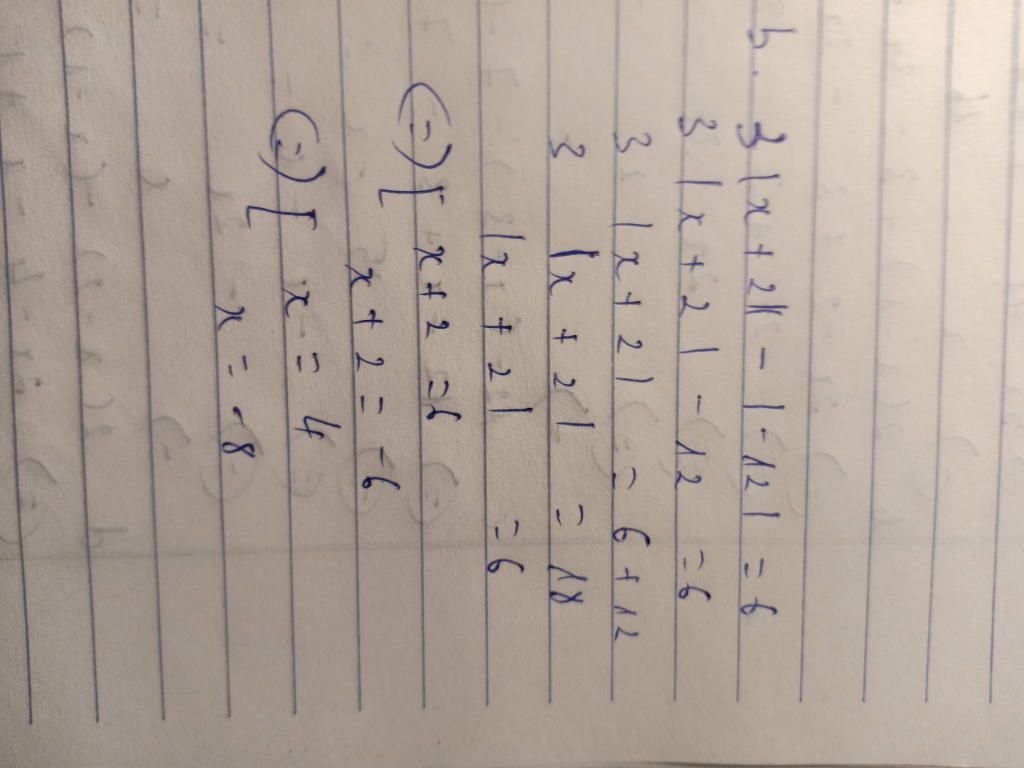 b. 3|x+2| - |-12| = 6
3|x+2| - 12 = 6
3|x+2| = 6+12
3|x+2| = 18
|x+2| = 6
(=) [ x+2 = 6
x+2 = -6
(=) [ x = 4
x = -8